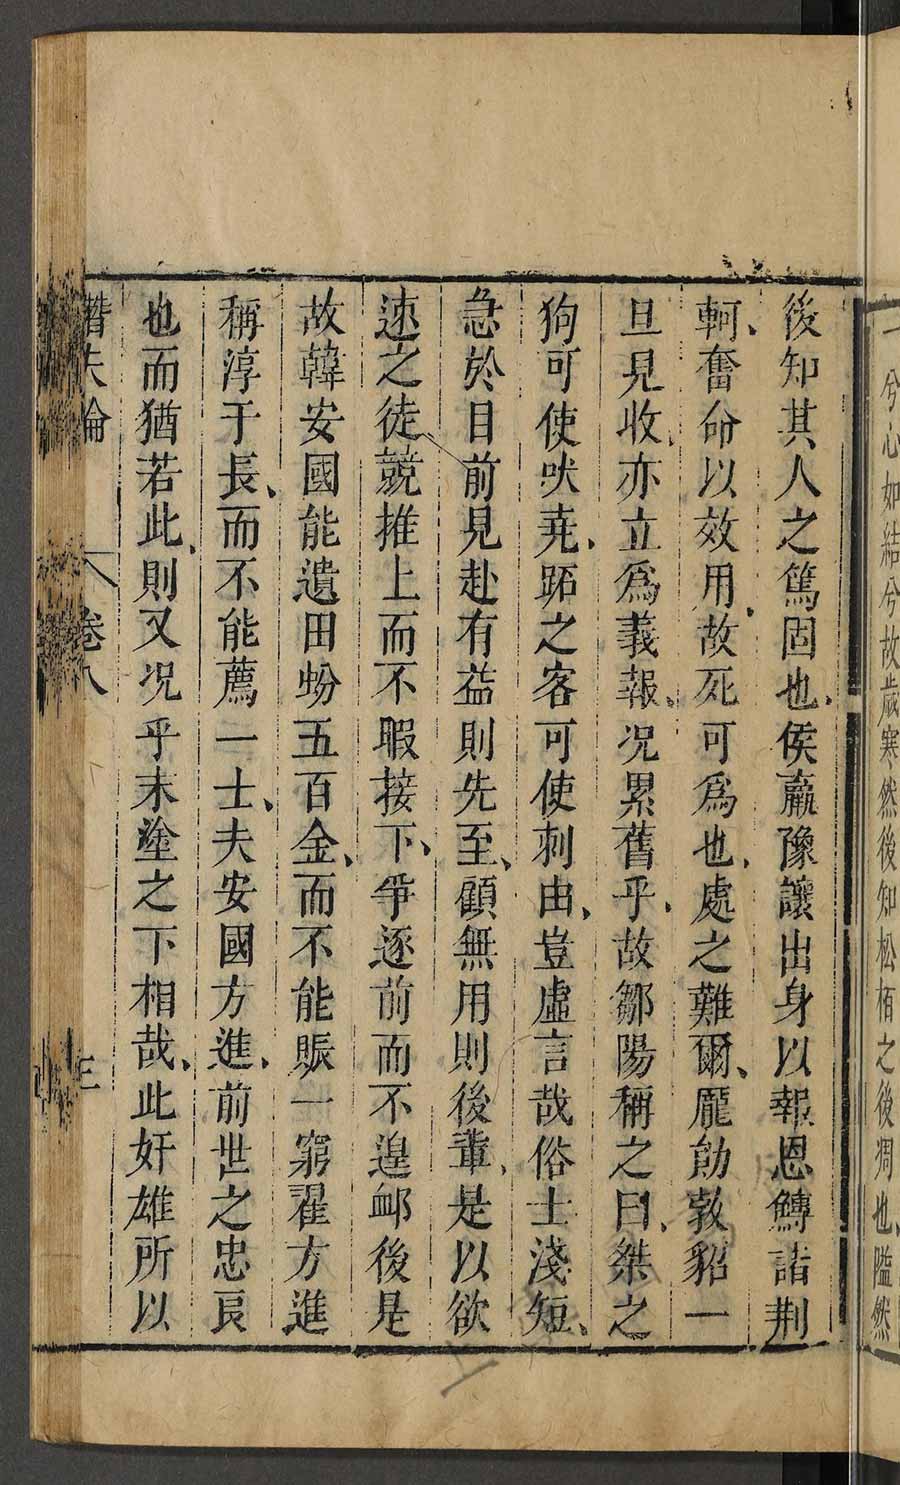 一兮心如結兮故歲寒然後知松栢之後凋也隘然
後知其人之篤固也侯嬴豫讓出身以報恩鱄諸荆
軻奮命以效用故死可爲也處之難爾龎勛敦貂一
旦見收亦立爲義報况累舊乎故鄒陽稱之曰桀之
狗可使吠尭跖之客可使刺由豈虛言哉俗士淺短
急於目前見赴有益則先至顧無用則後輩是以欲
速之徒競推上而不暇接下爭逐前而不遑卹後是
故韓安國能遺田蚡五百金而不能賑一窮翟方進
稱淳于長而不能薦一士夫安國方進前世之忠良
也而猶若此則又况乎末塗之下相哉此奸雄所以
潛夫論 卷八 三